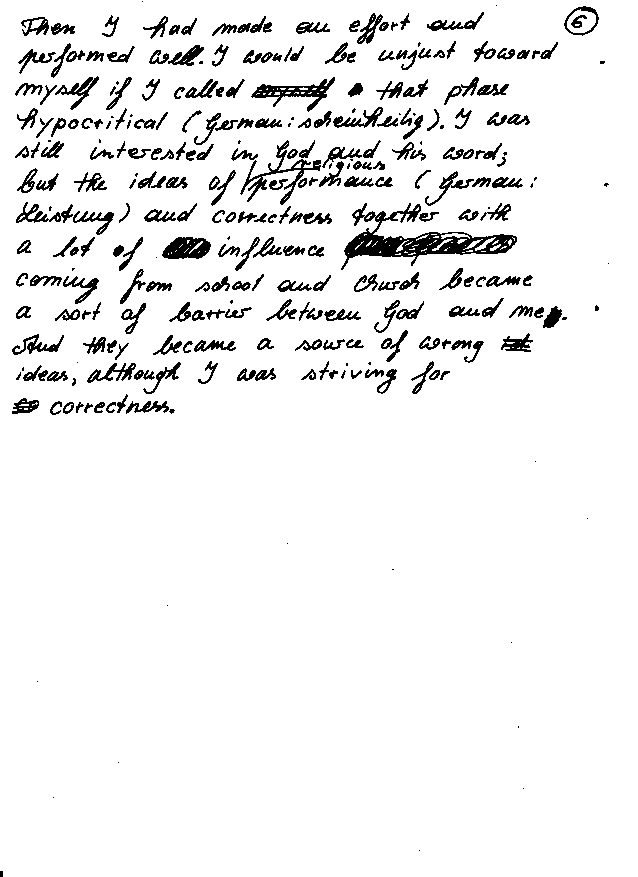 6
Then I had made an effort and
performed well. I would be unjust toward
myself if I called myself that phase
hypocritical (German: scheinheilig). I was
still interested in God and his word;
but the ideas of religious performance (German:
Leistung) and correctness together with
a lot of influence
coming from school and church became
a sort of barrier between God and me.
And they became a source of wrong
ideas, although I was striving for
correctness.